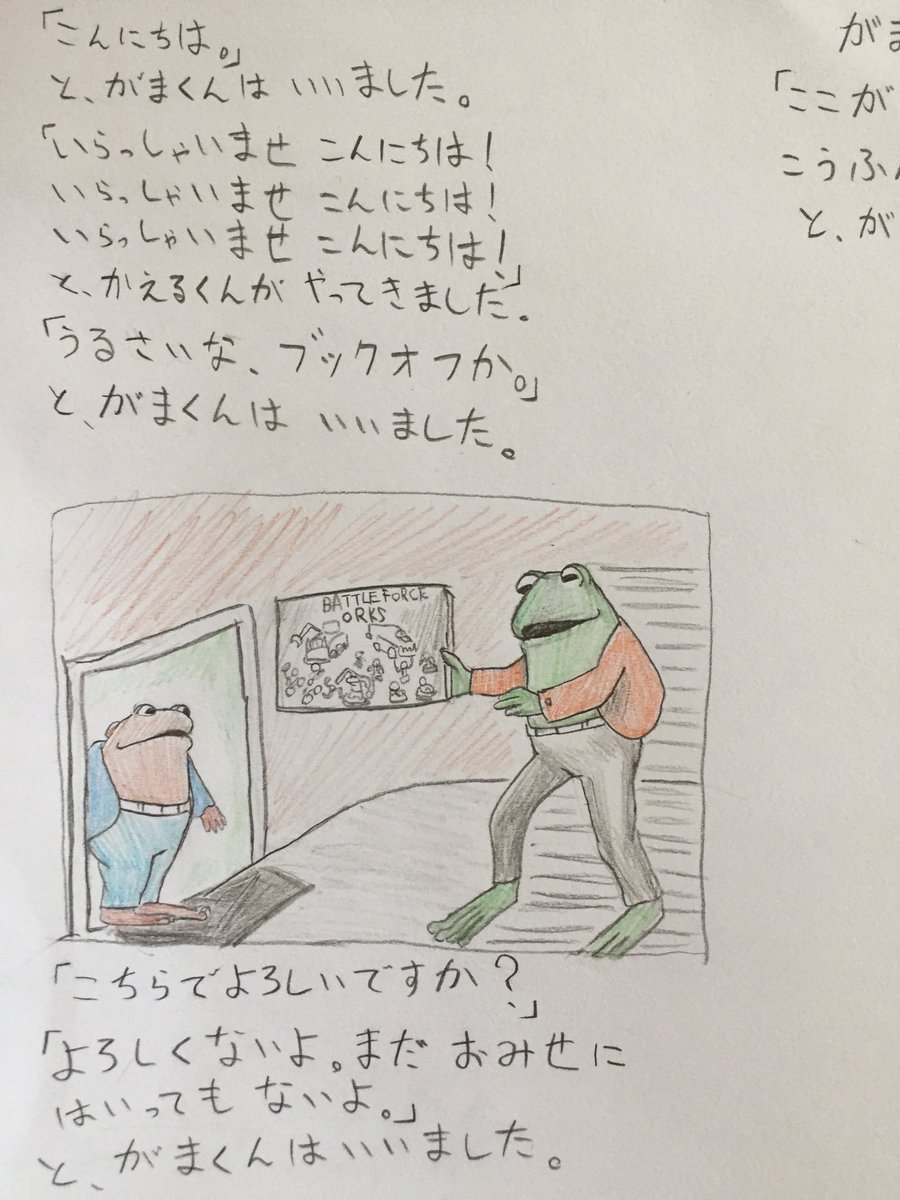 「こんにちは。」
と、がまくんは いいました。
「いらっしゃいませ こんにちは!
いらっしゃいませ こんにちは!
いらっしゃいませ こんにちは!」
と、かえるくんが やってきました。
「うるさいな、ブックオフか。」
と、がまくんは いいました。
BATTLEFORCE
ORKS
「こちらでよろしいですか?」
「よろしくないよ。まだ おみせに
はいっても ないよ。」
と、がまくんはいいました。
がま
「ここが
こうふん
と、が